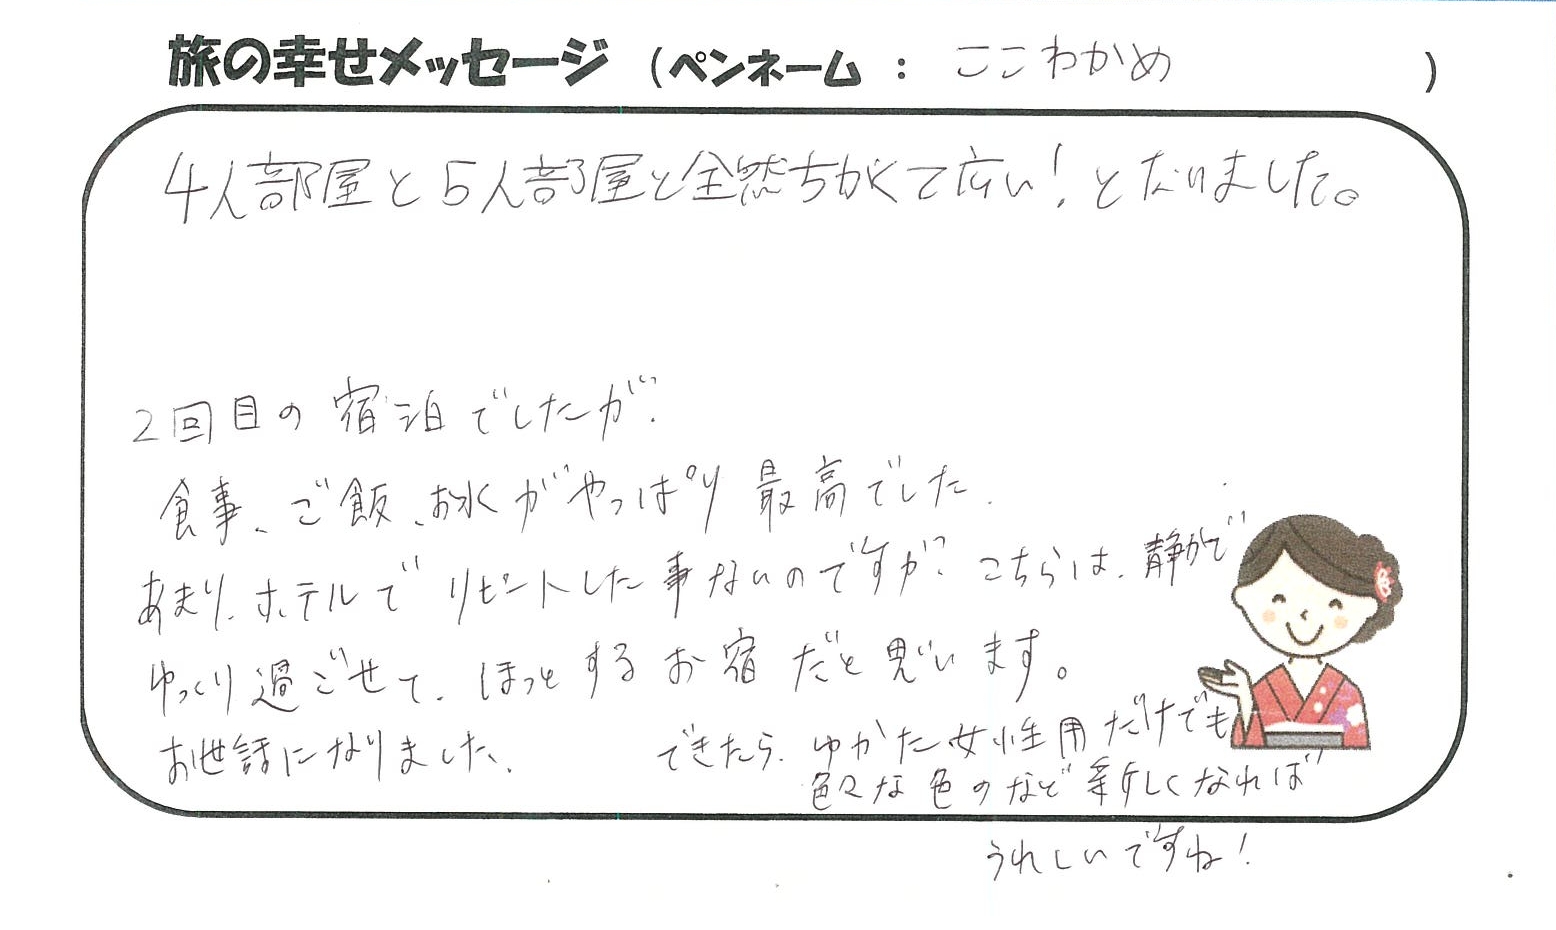 旅の幸せメッセージ (ペンネーム : ここわかめ )
4人部屋と5人部屋と全然ちがくて広い！となりました。
2回目の宿泊でしたが、
食事、ご飯、お水がやっぱり最高でした.
あまり、ホテルでリピートした事ないのですが、こちらは、静かで
ゆっくり過ごせて、ほっとするお宿だと思います。
お世話になりました、
できたら、ゆかた女性用だけでも
色々な色のなど新しくなれば
うれしいですね！